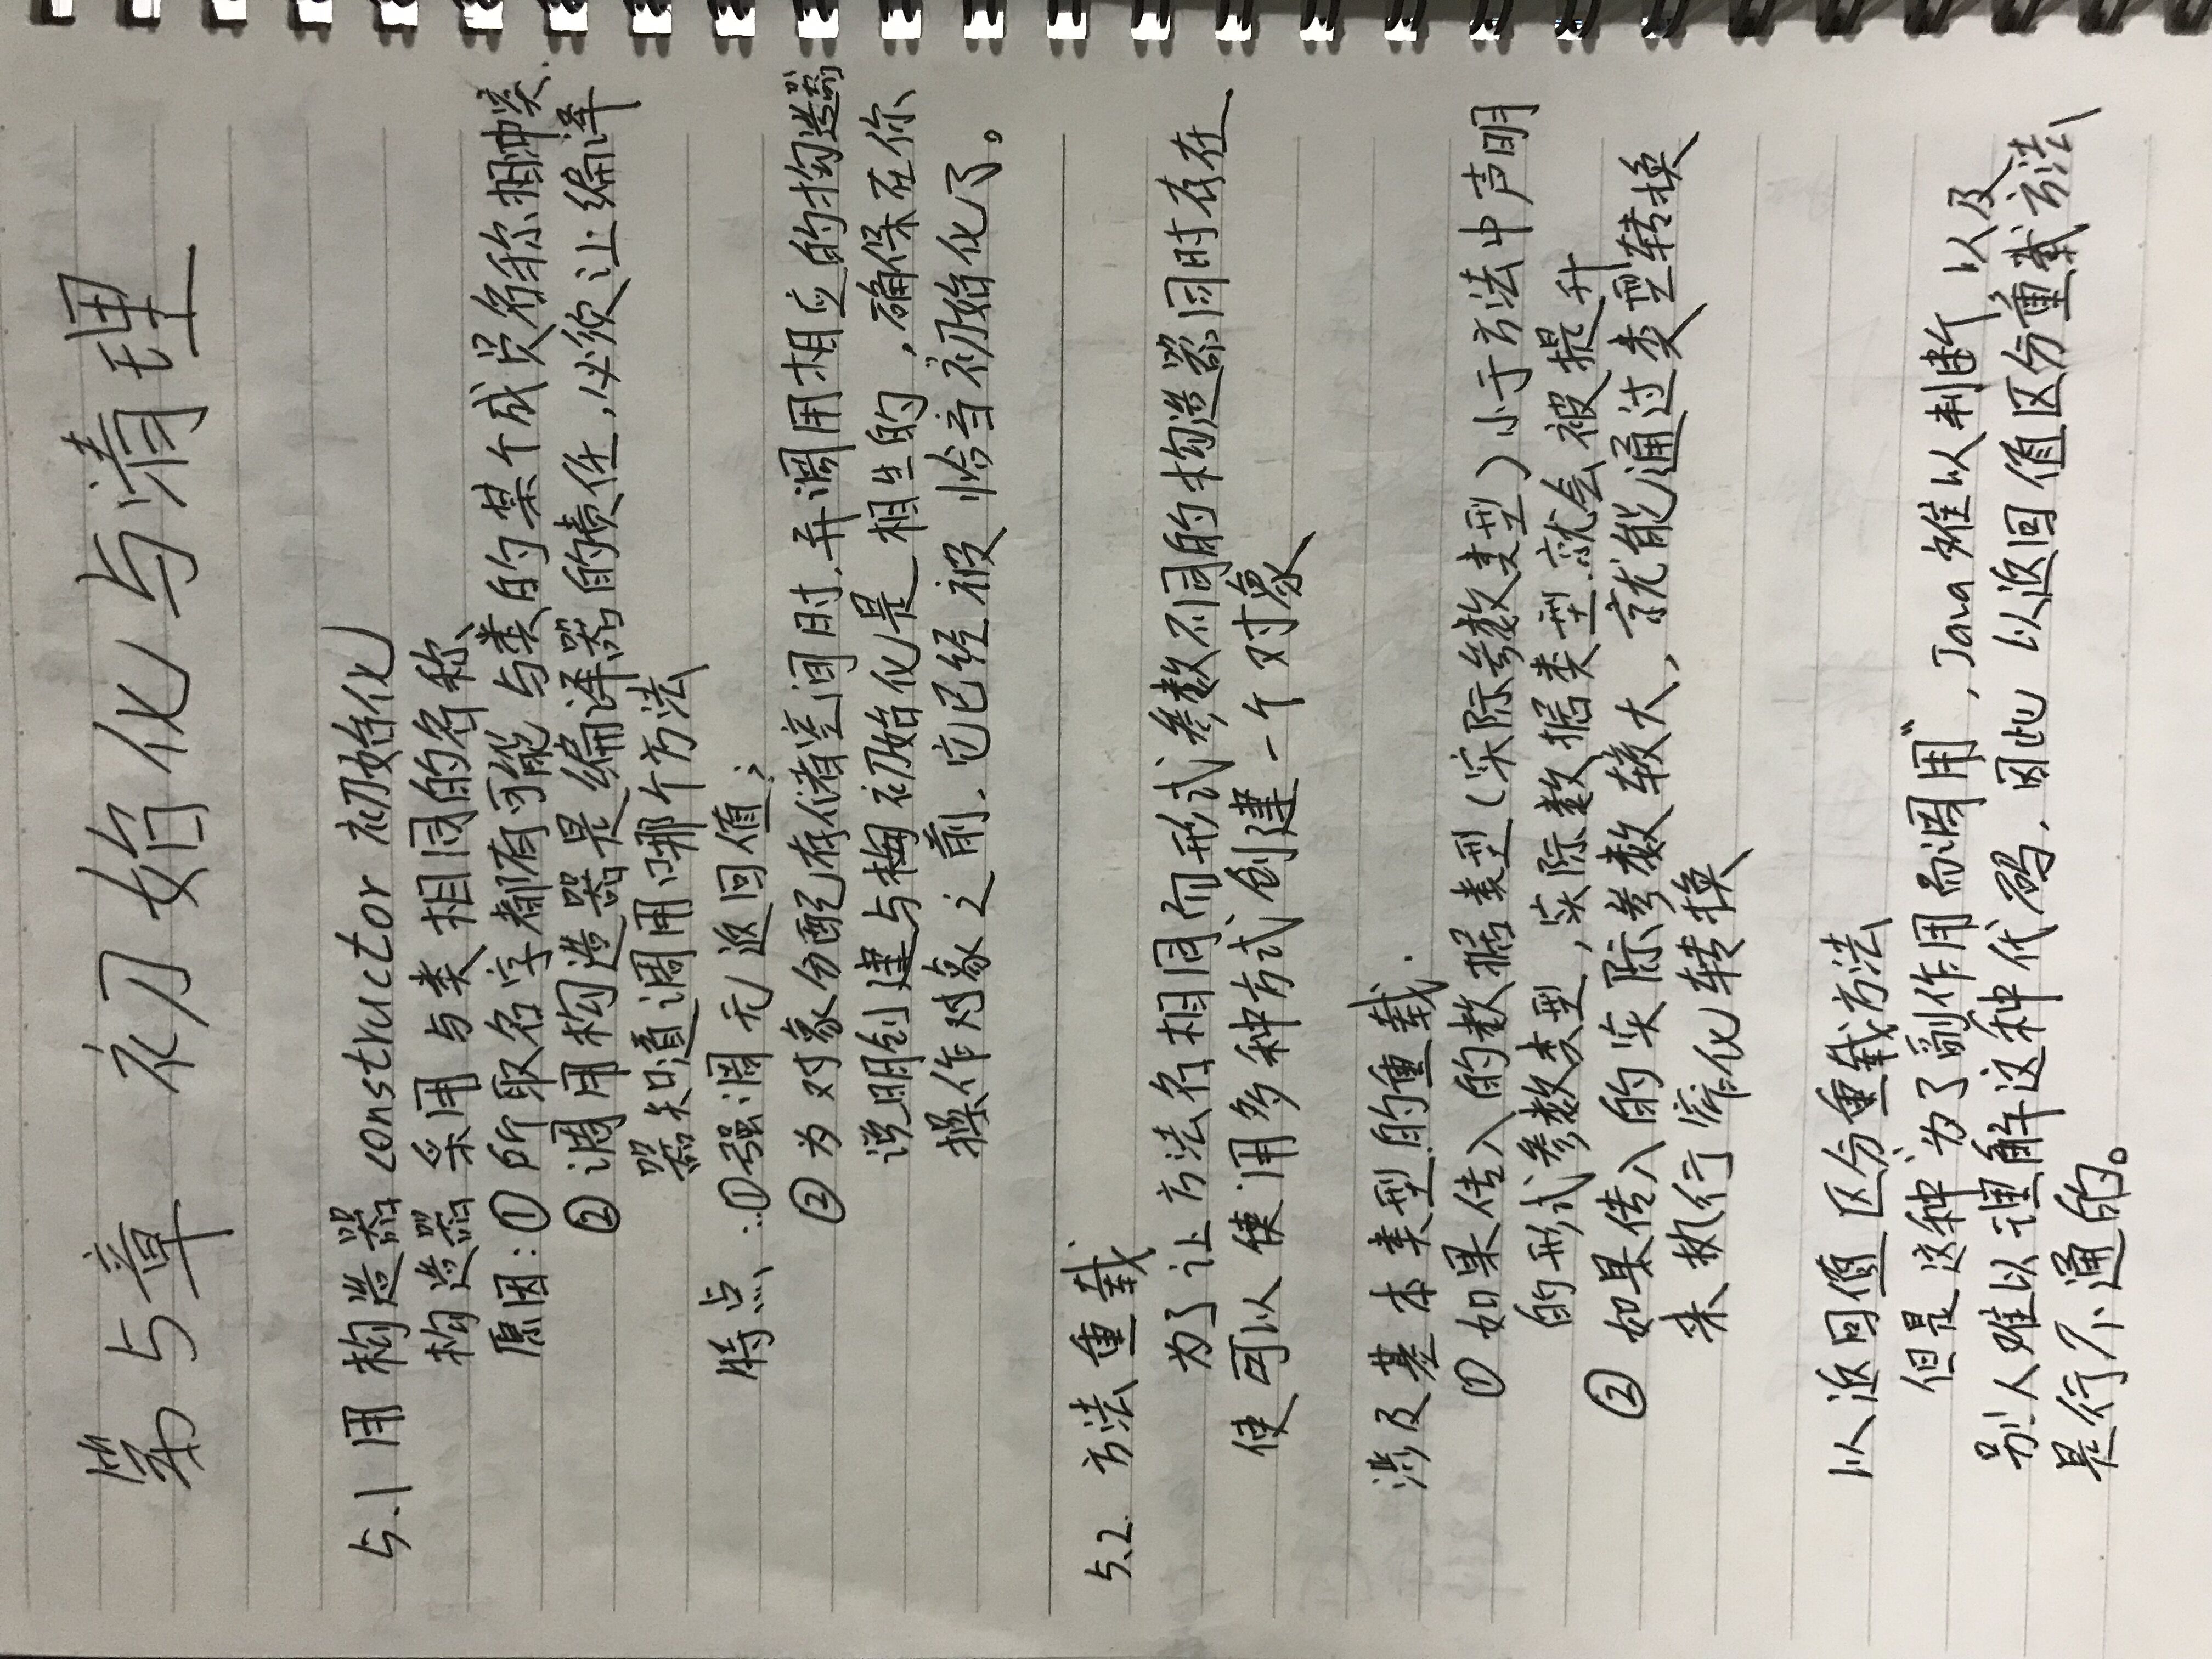 第5章 初始化与清理
5.1 用构造器 constructor 初始化
构造器采用与类相同的名称、
原因:① 所取名字都有可能与类的某个成员名称相冲突.
② 调用构造器是编译器的责任,必须让编译
器知道调用哪个方法
特点:①强调无返回值;
② 为对象分配存储空间时.并调用相应的构造器
说明创建与初始化是相生的,确保在你
操作对象之前.它已经被恰当初始化了。
5.2. 方法重载
为了让方法名相同而形式参数不同的构造器同时存在
使可以使用多种方式创建一个对象
涉及基本类型的重载.
① 如果传入的数据类型(实际参数类型)小于方法中声明
的形式参数类型,实际数据类型就会被提升
② 如果传入的实际参数较大,就能通过类型转换
来执行窄化转换
以返回值区分重载方法
但是这种“为了副作用而调用”,Java难以判断,以及
别人难以理解这种代码.因此 以返回值区分重载方法
是行不通的。